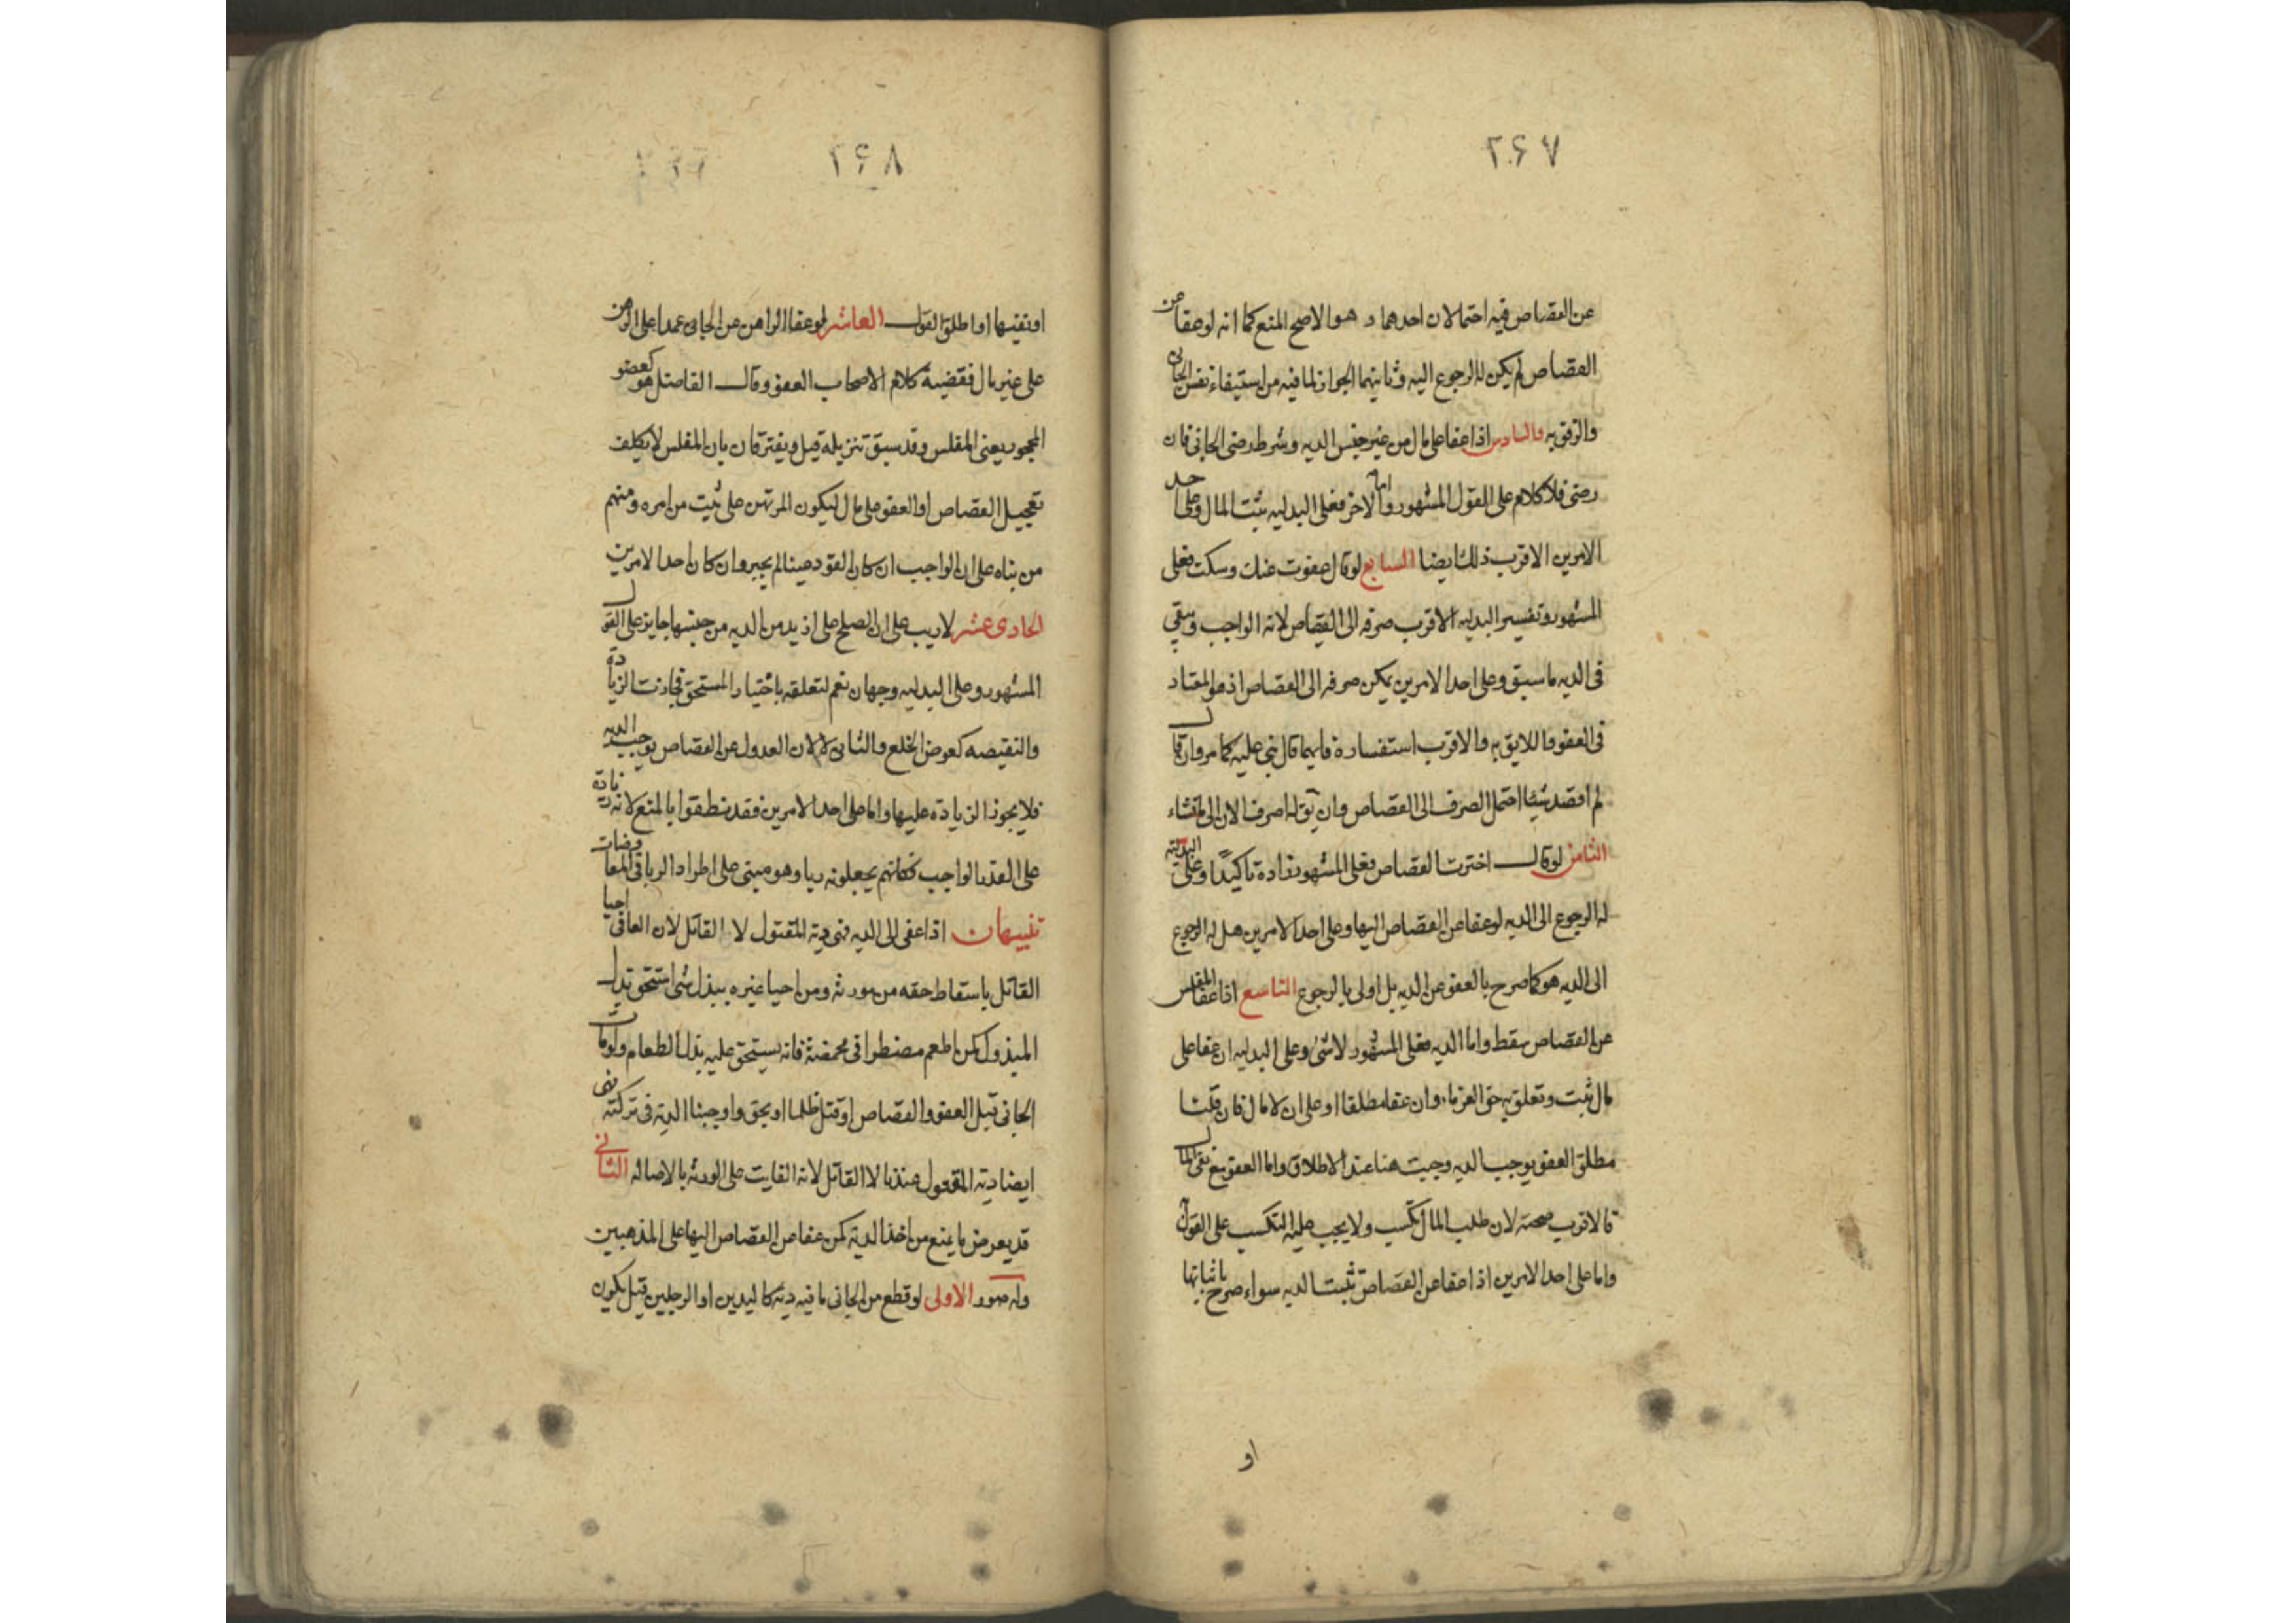 ٢۶٧
عن القصاص فيه احتمالان احدهما و هو الاصح المنع كما انه لو عفا عن
القصاص لم يكن له الرجوع اليه وثانيهما الجواز لما فيه من استيفاء نفس الجانى
والرفق به والسادس اذا عفا على مال من غير جنس الديه وشرط رضى الجانى فان
رضى فلا كلام على القول المشهور واما الاخر فعلى البدليه يثبت المال وعلى احد
الامرين الاقرب ذلك ايضا السابع لو قال عفوت عنك وسكت فعلى
المشهور وتفسير البدليه الاقرب صرفه الى القصاص لانه الواجب ويبقى
فى الديه ما سبق وعلى احد الامرين يمكن صرفه الى القصاص اذ هو المعتاد
فى العفو واللايق به والاقرب استفساره فايهما قال بنى عليه كما مر وان قال
لم اقصد شيئا احتمل الصرف الى القصاص وان يق له اصرف الان الى ما تشاء
الثامن لو قال اخترت القصاص فعلى المشهور تأكيدا وعلى البدلية
له الرجوع الى الديه لو عفا عن القصاص اليها وعلى احد الامرين هل له الرجوع
الى الديه هو كما صرح بالعفو عن الديه بل اولى بالرجوع التاسع اذا عفا المفلس
عن القصاص سقط واما الديه فعلى المشهور لا شئ وعلى البدليه ان عفا على
مال ثبت وتعلق به حق الغرماء وان عفا مطلقا او على ان لا مال فان قلنا
مطلق العفو يوجب الديه وجبت هنا عند الاطلاق واما العفو مع نفى المال
فالاقرب صحته لان طلب المال تكسب ولا يجب عليه التكسب على القول
واما على احد الامرين اذا عفا عن القصاص ثبتت الديه سواء صرح باثباتها
او
٢۶٨
او نفيها او اطلق القول العاشر لو عفا الراهن عن الجانى عمدا على الرهن
على غير مال فقضية كلام الاصحاب العفو وقال الفاضل هو كعفو
المحجور يعنى المفلس وقد سبق تنزيله قيل ويفترقان بان المفلس لا يكلف
تعجيل القصاص او العفو على مال ليكون المرتهن على ثبت من امره ومنهم
من بناه على ان الواجب ان كان القود عينا لم يجبر وان كان احد الامرين
الحادى عشر لا ريب على ان الصلح على ازيد من الديه من جنسها جايز على القول
المشهور وعلى البدليه وجهان نعم لتعلقه باختيار المستحق فجازت الزيادة
والنقيصه كعوض الخلع والثانى لا لان العدول عن القصاص يوجب الديه
فلا يجوز الزياده عليها واما على احد الامرين فقد نطقوا بالمنع لانه زيادة
على القدر الواجب فكانهم يجعلونه ربا وهو مبنى على اطراد الربا فى المعاوضات
تنبيهان اذا عفى الى الديه فهى دية المقتول لا القاتل لان العافى احيا
القاتل باسقاط حقه من مورثه ومن احيا غيره ببذل شئ استحق بدل
المبذول كمن اطعم مضطرا فى مخمصة فانه يستحق عليه بذل الطعام ولو مات
الجانى قبل العفو والقصاص او قتل ظلما او بحق واوجبنا الدية فى تركته فهى
ايضا دية المقتول عندنا لا القاتل لانه الفايت على الورثه بالاصاله الثانى
قد يعرض ما يمنع من اخذ الدية كمن عفا عن القصاص اليها على المذهبين
وله صور الاولى لو قطع من الجانى ما فيه ديته كاليدين او الرجلين قيل يكون